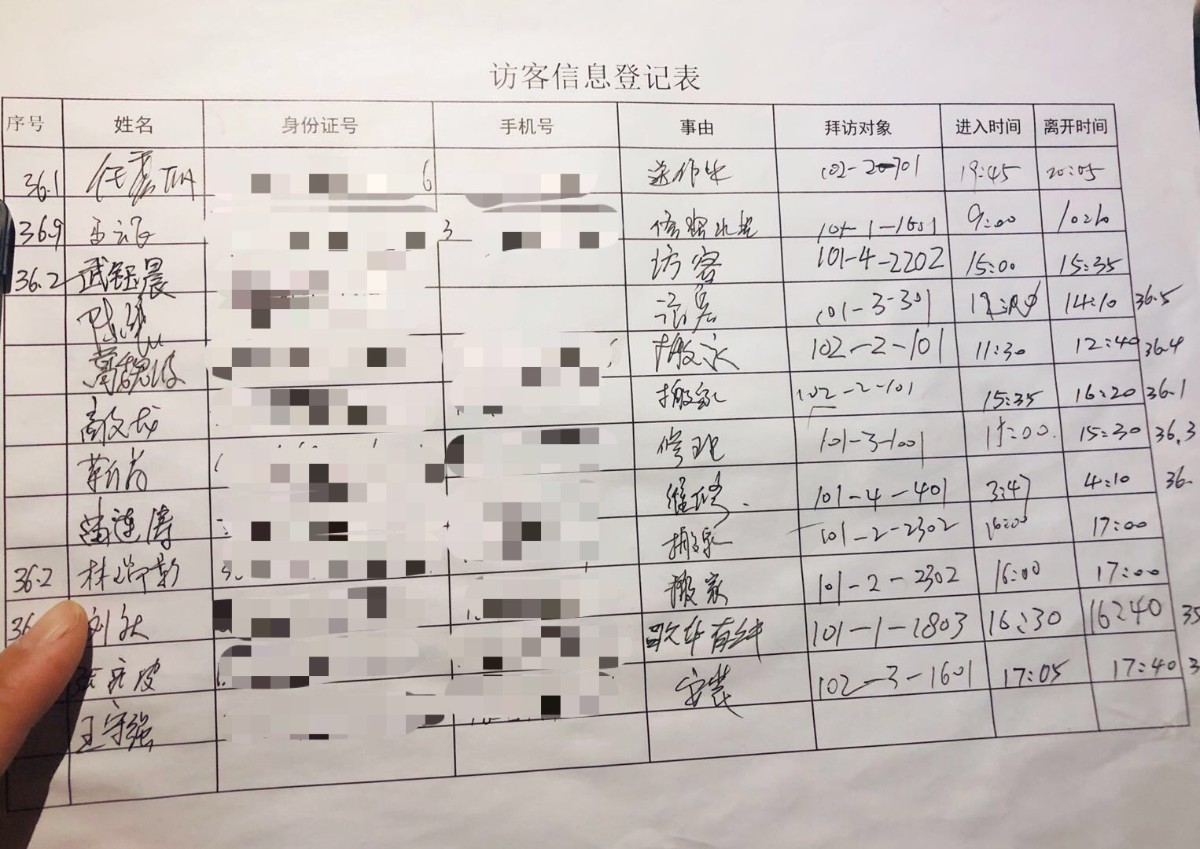 访客信息登记表
序号 姓名 身份证号 手机号 事由 拜访对象 进入时间 离开时间
36.1 6 102-2-701 19:45 20:05
36.9 3 101-1-1601 9:00 10:20
36.2 武钰晨 访客 101-4-2202 15:00 15:35
访客 101-3-301 14:10 36.5
搬家 102-2-101 11:30 12:40 36.4
高文龙 搬家 102-2-101 15:35 16:20 36.1
修理 101-3-1001 15:30 36.3
维修 101-4-401 3:47 4:10 36.
连涛 搬家 101-2-2302 16:00 17:00
36.2 林瑞影 搬家 101-2-2302 16:00 17:00
36 101-1-1803 16:30 16:40 35
安装 102-3-1601 17:05 17:40 3
王守强